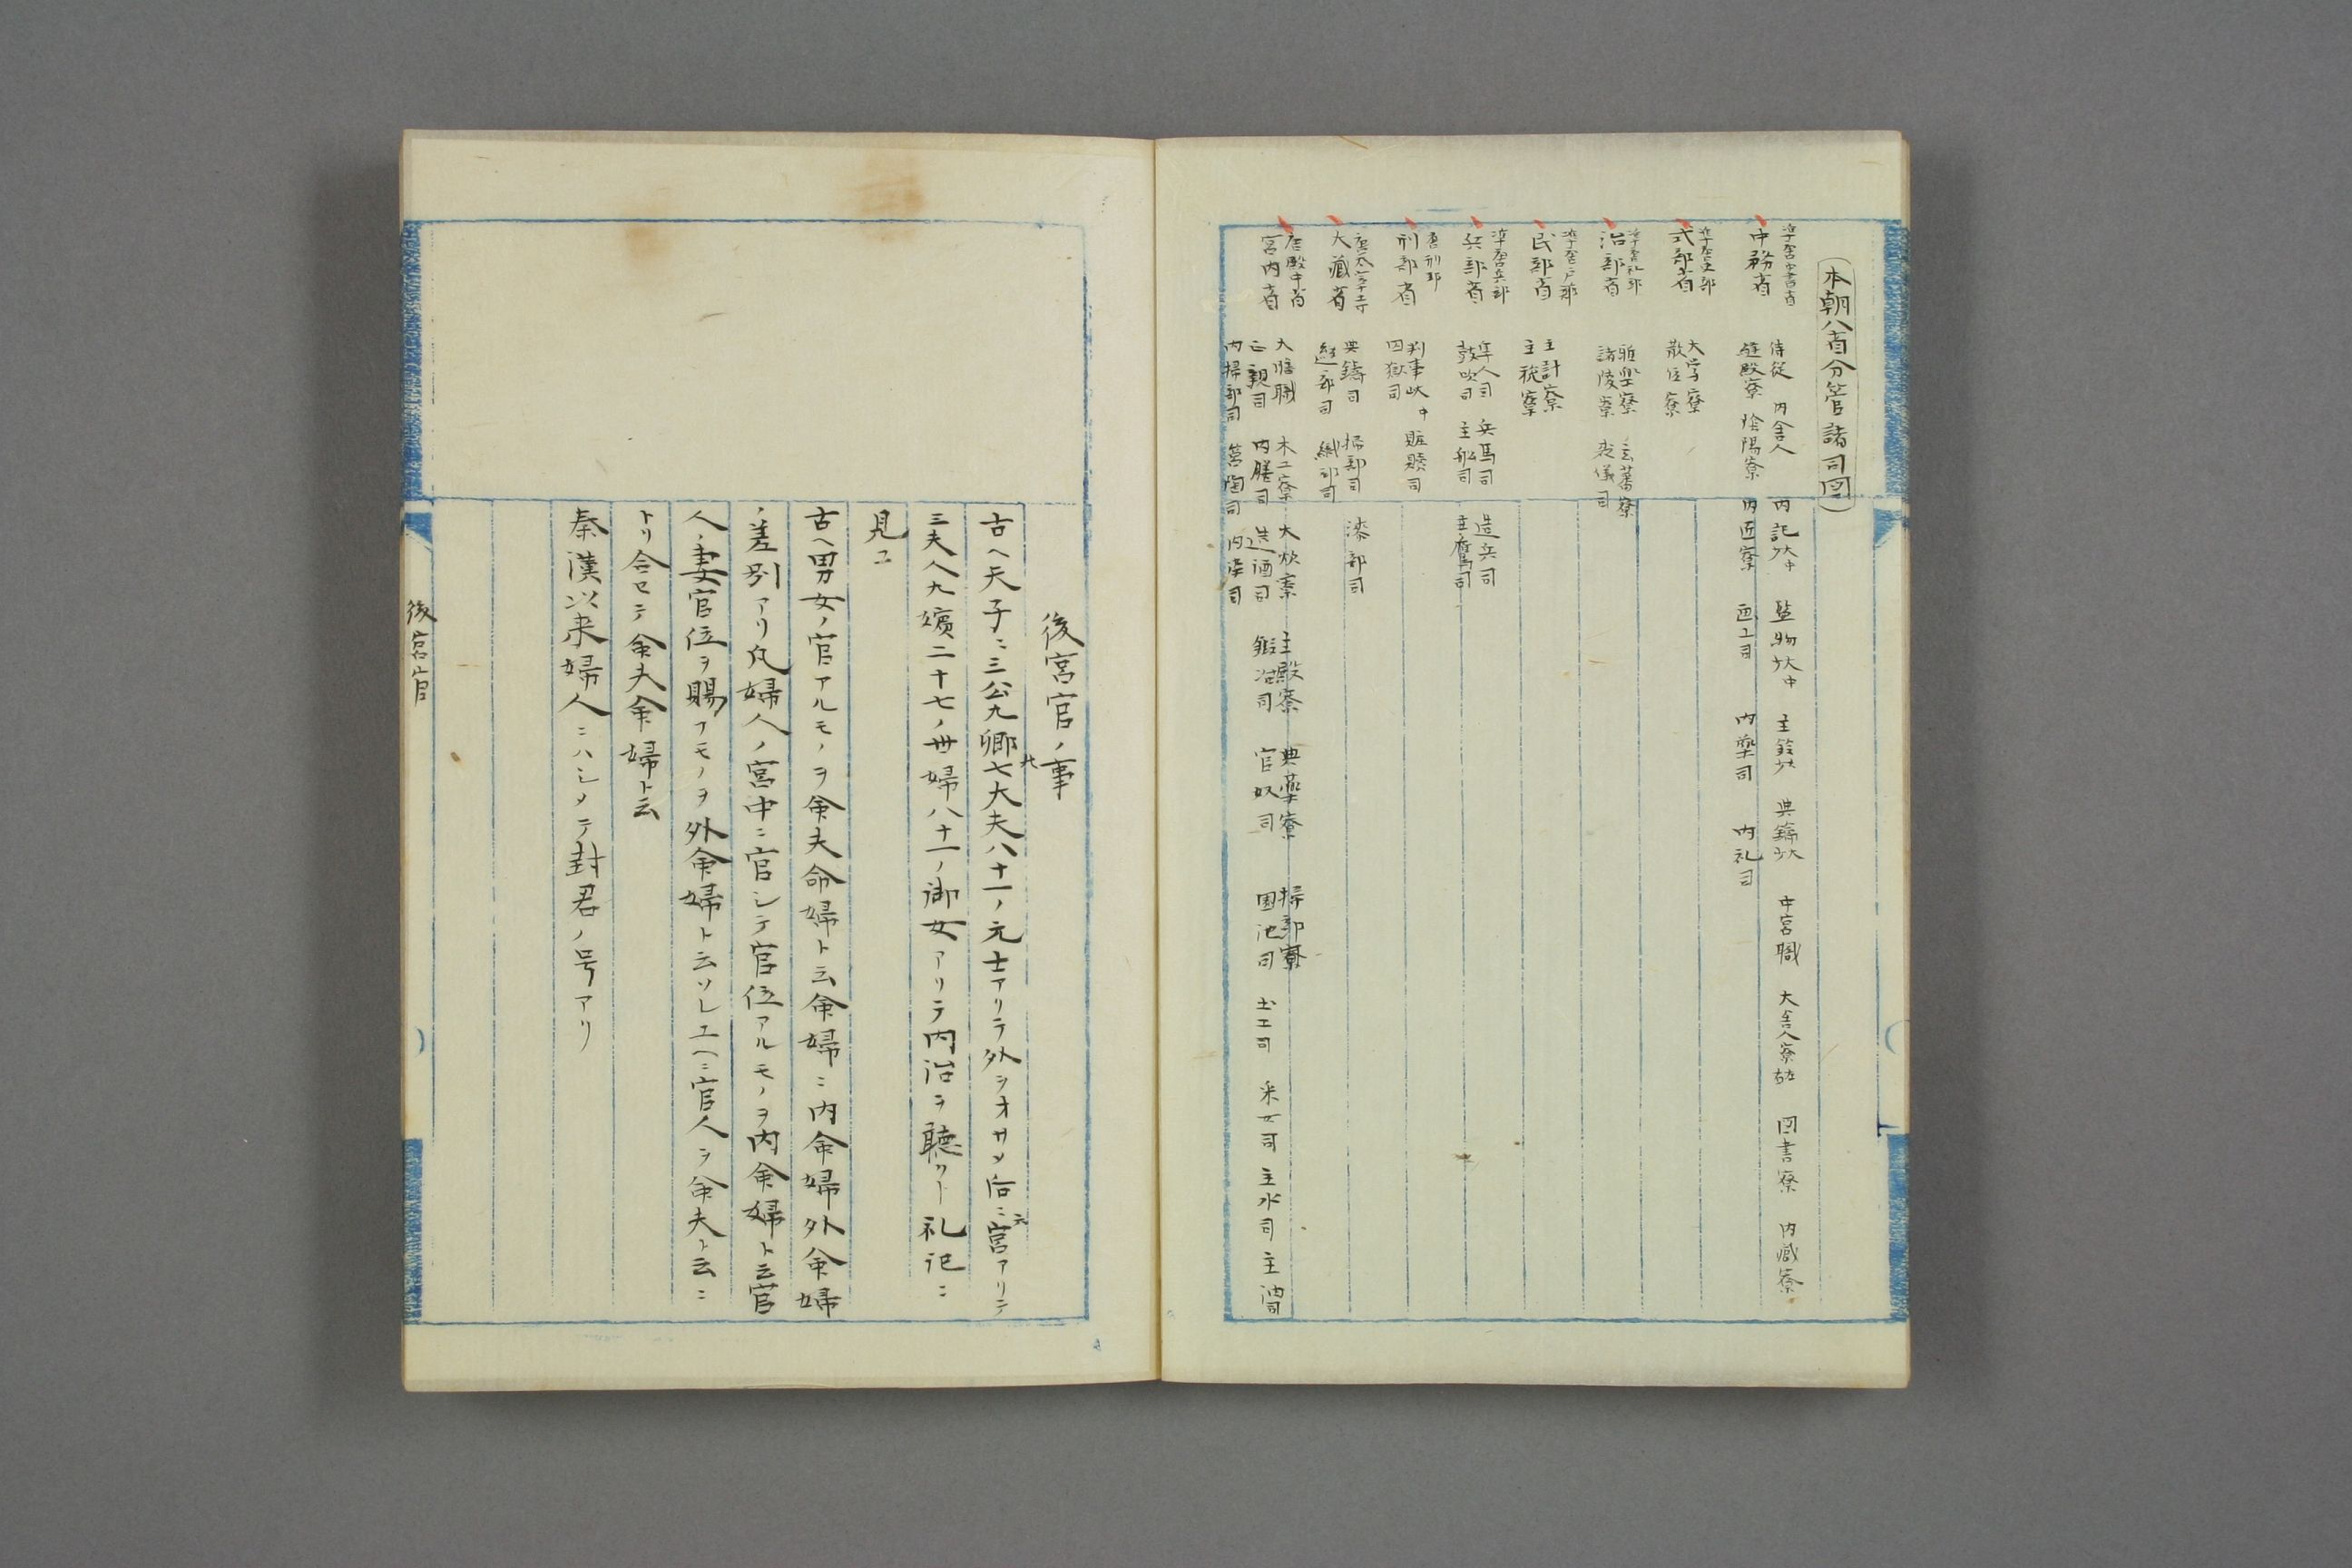 本朝八省分管諸司図
準唐中書省
中務省
侍従 内舎人 内記大中 監物大中 主鈴大少 典鑰大少 中宮職 大舎人寮左右 図書寮 内蔵寮
縫殿寮 陰陽寮 内匠寮 画工司 内薬司 内礼司
準唐吏部
式部省
大学寮
散位寮
準唐礼部
治部省
雅楽寮 玄蕃寮
諸陵寮 喪儀司
準唐戸部
民部省
主計寮
主税寮
準唐兵部
兵部省
隼人司 兵馬司 造兵司
鼓吹司 主船司 主鷹司
唐刑部
刑部省
判事大中 贓贖司
囚獄司
唐太府寺
大蔵省
典鋳司 掃部司 漆部司
縫部司 織部司
唐殿中省
宮内省
大膳職 木工寮 大炊寮 主殿寮 典薬寮 掃部寮
正親司 内膳司 造酒司 鍛冶司 官奴司 園池司 土工司 采女司 主水司 主油司
内掃部司 筥陶司 内染司
後宮官ノ事
古ヘ天子ニ三公九卿七大夫八十一ノ元士アリテ外ヲオサメ后ニ六宮アリテ
三夫人九嬪二十七ノ世婦八十一ノ御女アリテ内治ヲ聴クト礼記ニ
見ユ
古ヘ男女ノ官アルモノヲ命夫命婦ト云命婦ニ内命婦外命婦
ノ差別アリ凡婦人ノ宮中ニ官シテ官位アルモノヲ内命婦ト云官
人ノ妻官位ヲ賜フモノヲ外命婦ト云ソレユヘニ官人ヲ命夫ト云ニ
トリ合セテ命夫命婦ト云
秦漢以来婦人ニハシメテ封君ノ号アリ
後宮官